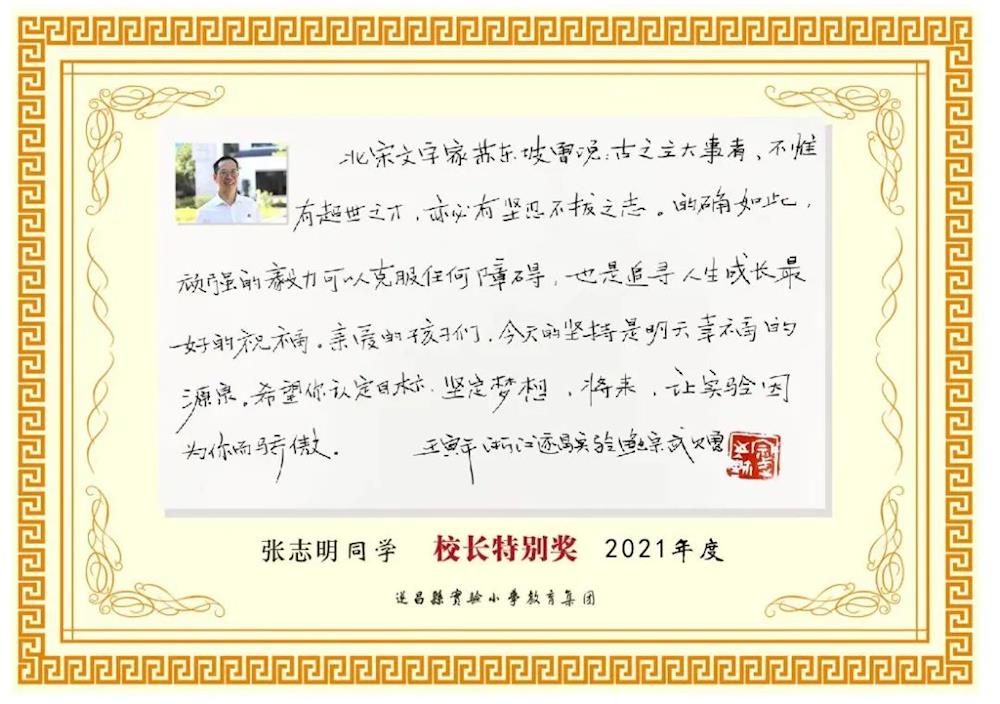 北宋文学家苏东坡曾说：古之立大事者，不惟
有超世之才，亦必有坚忍不拔之志。的确如此，
顽强的毅力可以克服任何障碍，也是追寻人生成长最
好的祝福。亲爱的孩子们，今天的坚持是明天幸福的
源泉。希望你认定目标，坚定梦想，将来，让实验因
为你而骄傲。 壬寅年 浙江遂昌实验
张志明同学 校长特别奖 2021年度
遂昌縣實驗小學教育集团